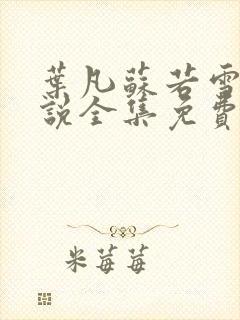 葉凡蘇若雪
説全集免費
米莓莓